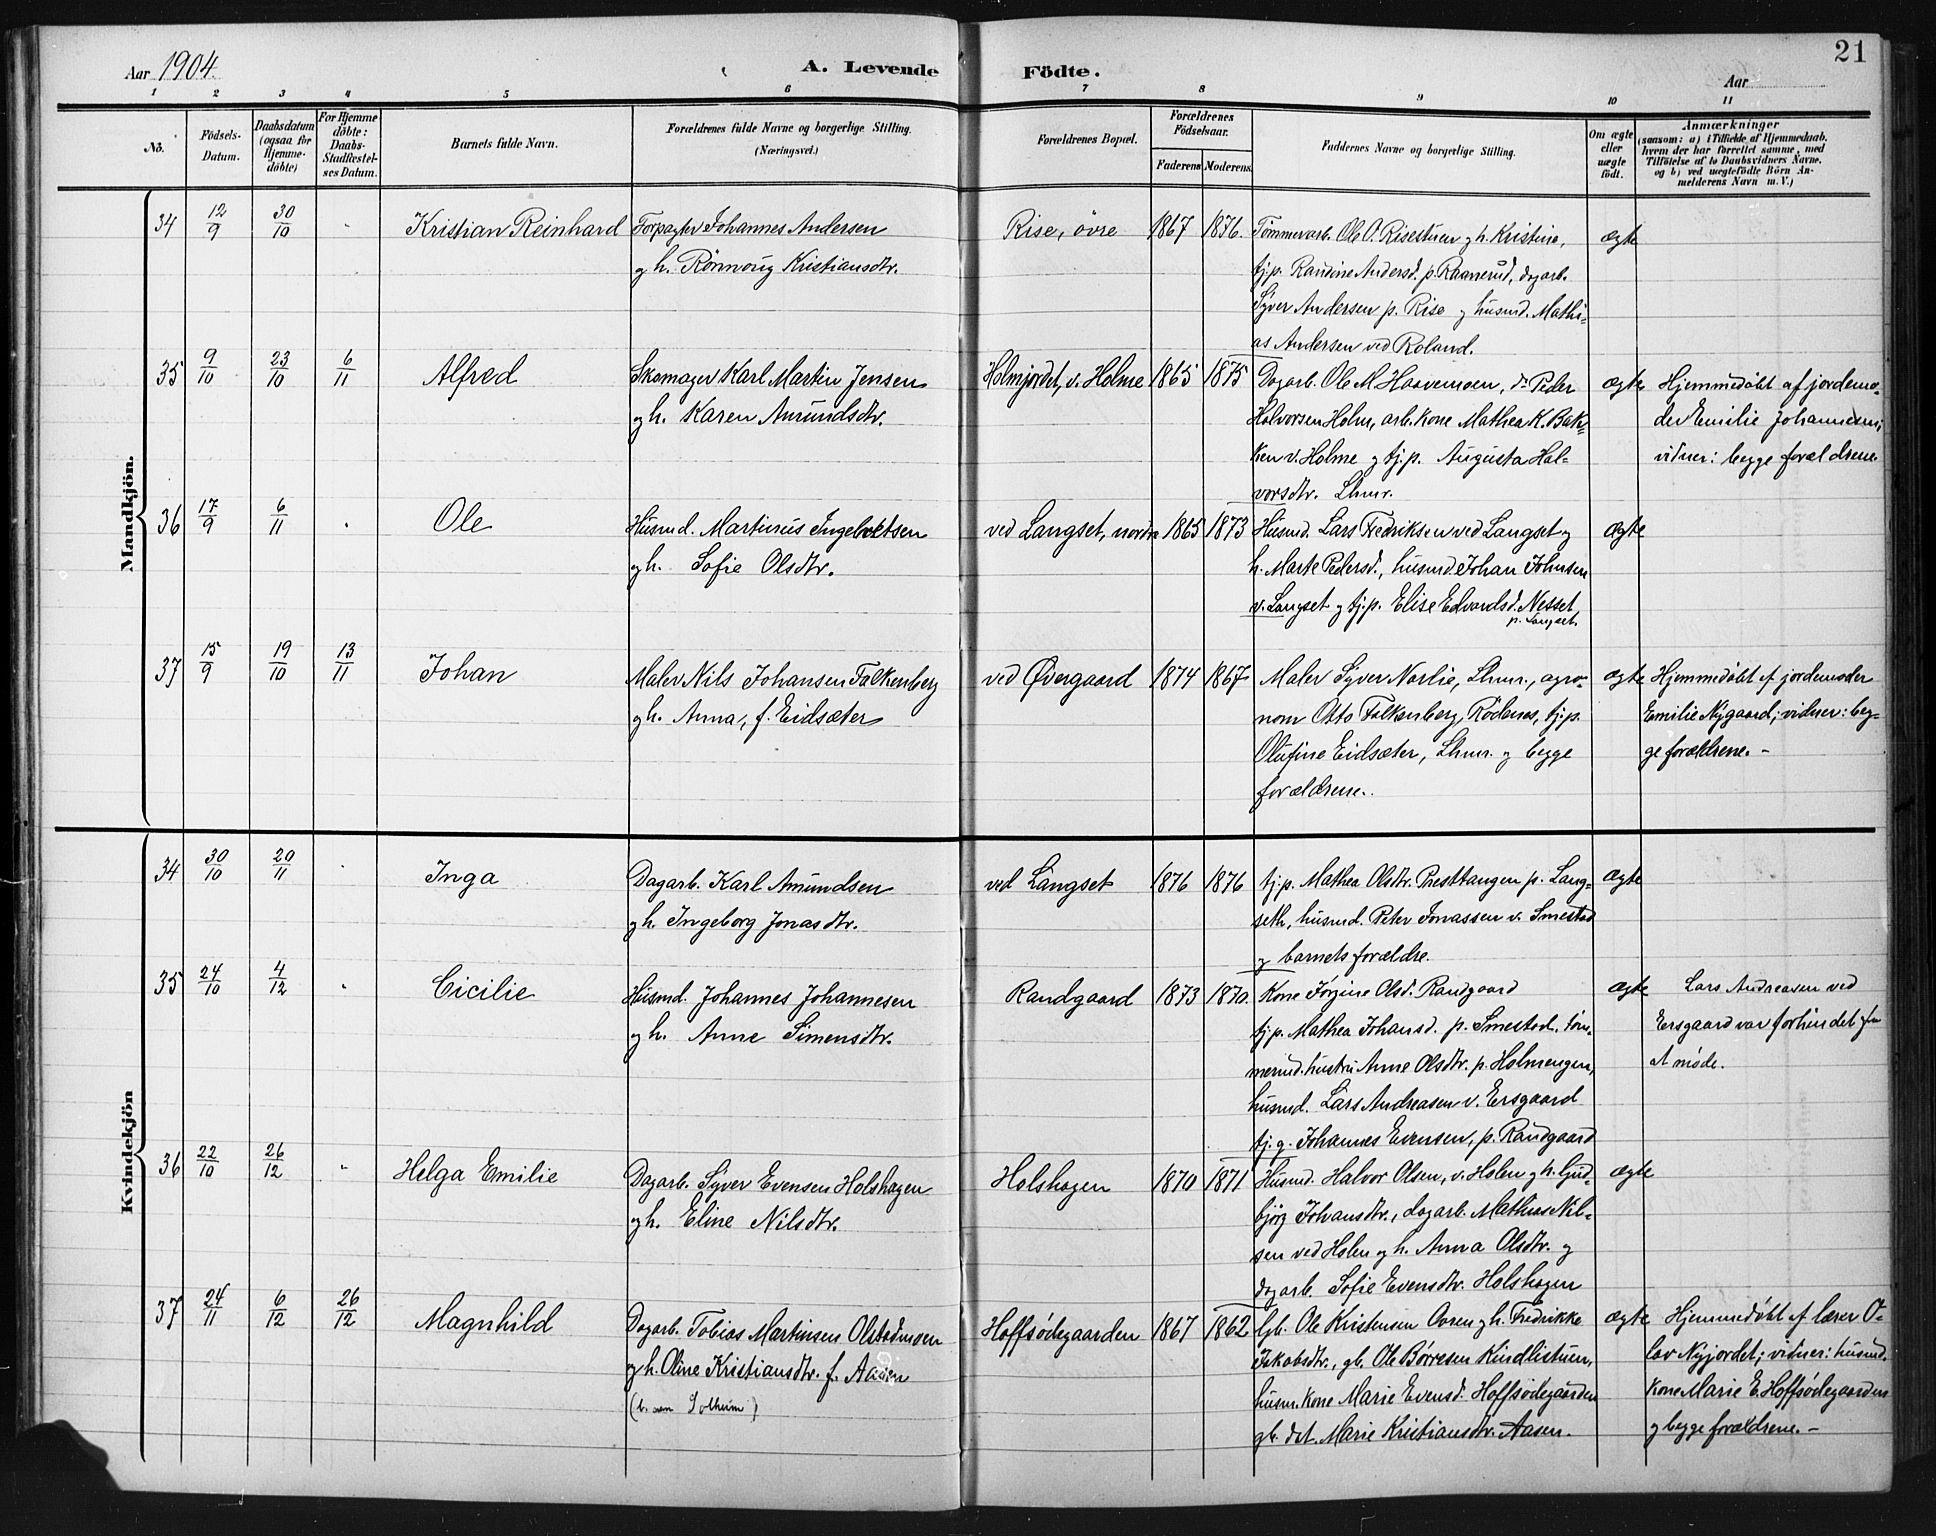 21
Aar 1904.
A. Levende Födte.
Aar
1 2 3 4 5 6 7 8 9 10 11
No.
Födsels-Datum.
Daabsdatum (ogsaa for Hjemme-döbte)
For Hjemme döbte: Daabs-Stadfæstel-ses Datum.
Barnets fulde Navn.
Forældrenes fulde Navne og borgerlige Stilling.
(Næringsvei.)
Forældrenes Bopæl.
Forældrenes Födselsaar.
Faderens
Moderens.
Faddernes Navne og borgerlige Stilling.
Om ægte eller uægte födt.
Anmærkninger
(saasom: a) i Tilfælde af Hjemmedaab,
hvem der har forrettet samme, med
Tilföielse af to Daabsvidners Navne.
og b) ved uægtefödte Börn An-
melderens Navn m. V.)
Mandkjön.
34 12/9 30/10 Kristian Reinhard
Forpagter Johannes Andersen
gh. Rønnoug Kristiansdtr.
Rise, øvre 1867 1876.
Tømmerarb. Ole O. Risestuen gh. Kristine,
tj.p. Randine Andersd. p. Raanerud, dagarb.
Syver Andersen p. Rise g husmd. Mathi-
as Andersen ved Roland.
ægte
35 9/10 23/10 6/11 Alfred
Skomager Karl Martin Jensen
gh. Karen Amundsdtr.
Holmjordet, v. Holme 1865 1875
Dagarb. Ole M. Haavemoen, do Peder
Halvorsen Holm, arb. kone Mathea K. Bak-
ken v. Holme g tj.p. Augusta Hal-
vorsdtr. Lhmr.
ægte
Hjemmedøbt af jordemo-
der Emilie Johannesen;
vidner: begge forældrene.
36 17/9 6/11 Ole
Husmd. Martinus Ingebretsen
gh. Sofie Olsdtr.
ved Langset, nordre 1865 1873
Husmd. Lars Fredriksen ved Langset g
h. Marte Pedersd., husmd. Johan Johnsen
v. Langset g tj.p. Elise Edvardsd. Nesset
p. Langset.
ægte
37 15/9 19/10 13/11 Johan
Maler Nils Johansen Falkenberg
gh. Anna, f. Eidsæter
ved Øvergaard 1874 1867
Maler Syver Norlie, Lhmr., agro-
nom Otto Falkenberg, Rødenes, tj.p.
Olufine Eidsæter, Lhmr. g begge
forældrene.
ægte
Hjemmedøbt af jordemoder
Emilie Nygaard; vidner: beg-
ge forældrene. -
Kvindekjön
34 30/10 20/11 Inga
Dagarb. Karl Amundsen
gh. Ingeborg Jonasdtr.
ved Langset 1876 1876
tj.p. Mathea Olsdtr. Presttangen p. Lang-
seth, husmd. Peter Jonassen v. Smestad
g barnets forældre.
ægte
35 24/10 4/12 Cicilie
Husmd. Johannes Johannesen
gh. Anne Simensdtr.
Randgaard 1873 1870.
Kone Jørgine Olsd. Randgaard
tj.p. Mathea Johansd. p. Smestad, tøm-
mermd. hustru Anne Olsdtr. p. Holmengen,
husmd. Lars Andreasen v. Ersgaard
tj.g. Johannes Evensen, p. Randgaard
ægte
Lars Andreasen ved
Ersgaard var forhindet fra
at møde.
36 22/10 26/12 Helga Emilie
Dagarb. Syver Evensen Holshagen
gh. Eline Nilsdtr.
Holshagen 1870 1871
Husmd. Halvor Olsen, v. Holen gh. Gud-
bjørg Johansdtr., dagarb. Mathias Nil-
sen ved Holen gh. Anna Olsdtr. g
dagarb. Sofie Evensdtr. Holshagen
ægte
37 24/11 6/12 26/12 Magnhild
Dagarb. Tobias Martinsen Olstadmoen
gh. Oline Kristiansdtr. f. Aasen
Solheim)
Hoffsødegaarden 1867 1862
Gb. Ole Kristensen Ovren gh. Fredrikke
Jakobsdtr., gb. Ole Børresen Kindlistuen,
husm. kone Marie Evensd. Hoffsødegaarden
gb. dat. Marie Kristiansdtr. Aasen.
ægte
Hjemmedøbt af lærer O-
lav Nyjordet; vidner: husmd.
kone Marie E. Hoffsødegaarden
g begge forældrene. -